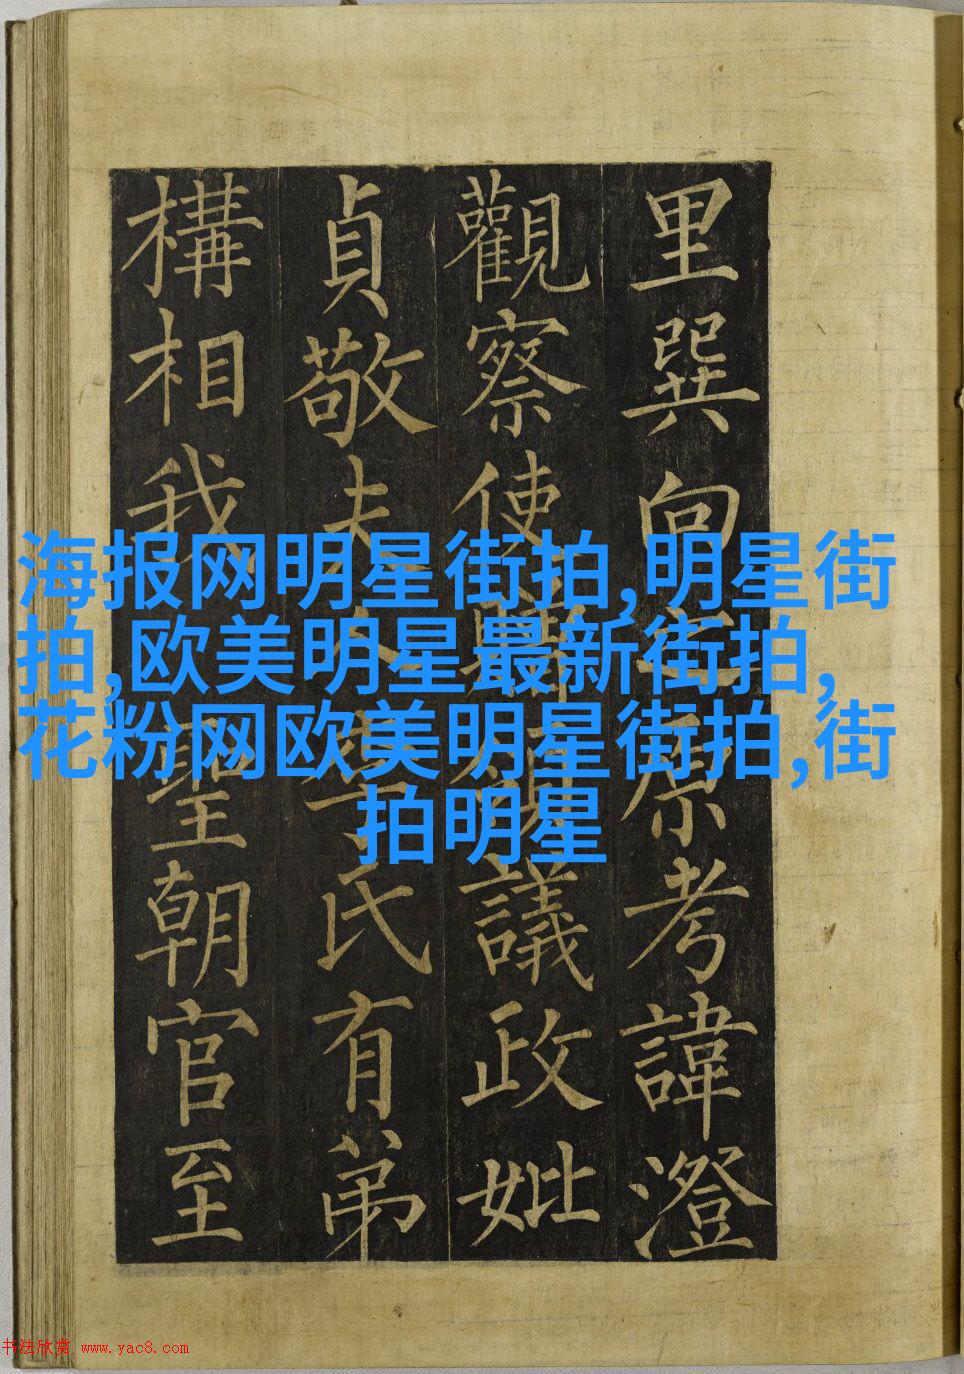 里巽向原考諱澄
觀察使議政妣
貞敬夫氏有弟
構相我聖朝官至
海报网明星街拍,明星街
拍,欧美明星最新街拍,
花粉网欧美明星街拍,街
拍明星
书法欣赏 www.yac8.com